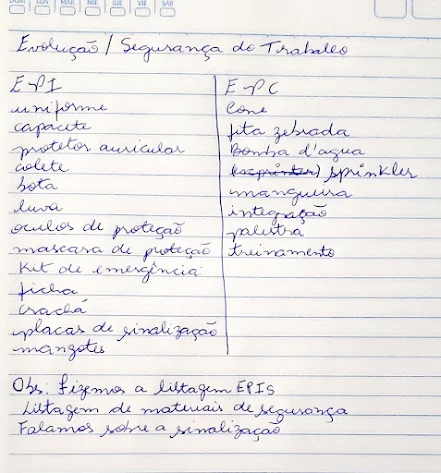 DOM LUN MAR MIE JUE VIE SAB
Evolução / Segurança do Trabalho
EPI
uniforme
capacete
protetor auricular
colete
bota
luva
oculos de proteção
mascara de proteção
Kit de emergência
ficha
crachá
placas de sinalização
mangotes
EPC
Cone
fita zebrada
Bomba d'agua
sprinkler
mangueira
integração
palestra
treinamento
Obs: fizemos a listagem EPIS
Listagem de materiais de segurança
Falamos sobre a sinalização